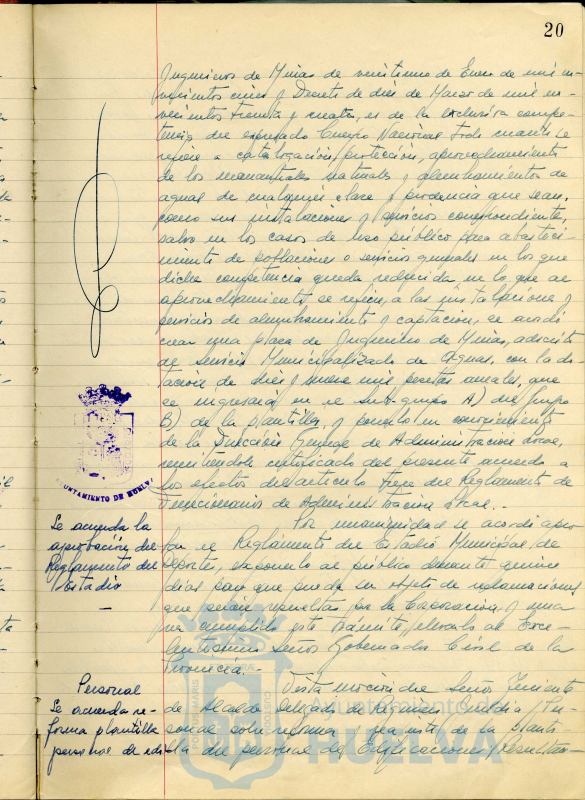 20
Ingenieros de Minas de veintiuno de Enero de mil no-
vecientos cinco y Decreto de diez de Marzo de mil no-
vecientos treinta y cuatro, es de la exclusiva compe-
tencia del expresado Cuerpo Nacional todo cuanto se
refiere a catalogación, protección, aprovechamiento
de los manantiales naturales y alumbramientos de
aguas de cualquier clase y procedencia que sean,
como sus instalaciones y servicios correspondientes,
salvo en los casos de uso público para abasteci-
miento de poblaciones o servicios generales en los que
dicha competencia queda reducida en lo que al
aprovechamiento se refiere, a las instalaciones y
servicios de alumbramiento y captación, se acordó
crear una plaza de Ingeniero de Minas, adscrita
al Servicio Municipalizado de Aguas, con la do-
tación de diez y nueve mil pesetas anuales, que
se ingresará en el sub-grupo A) del Grupo
B) de la plantilla, y ponerlo en conocimiento
de la Dirección General de Administración Local,
remitiéndole certificado del presente acuerdo a
los efectos del artículo trece del Reglamento de
Funcionarios de Administración Local.-
AYUNTAMIENTO DE HUELVA
Se acuerda la
aprobación del
Reglamento del
Estadio
Por unanimidad se acordó apro-
bar el Reglamento del Estadio Municipal de
Deportes, exponerlo al público durante quince
días para que pueda ser objeto de reclamaciones
que serán resueltas por la Corporación, y una
vez cumplido este trámite, elevarlo al Exce-
lentísimo Señor Gobernador Civil de la
Provincia.-
Personal
Se acuerda re-
forma plantilla
personal de edi-
Vista moción del Señor Teniente
de Alcalde Delegado de
sobre reforma y reajuste de la planti-
lla del personal de Edificaciones,
Ayuntamiento
HUELVA